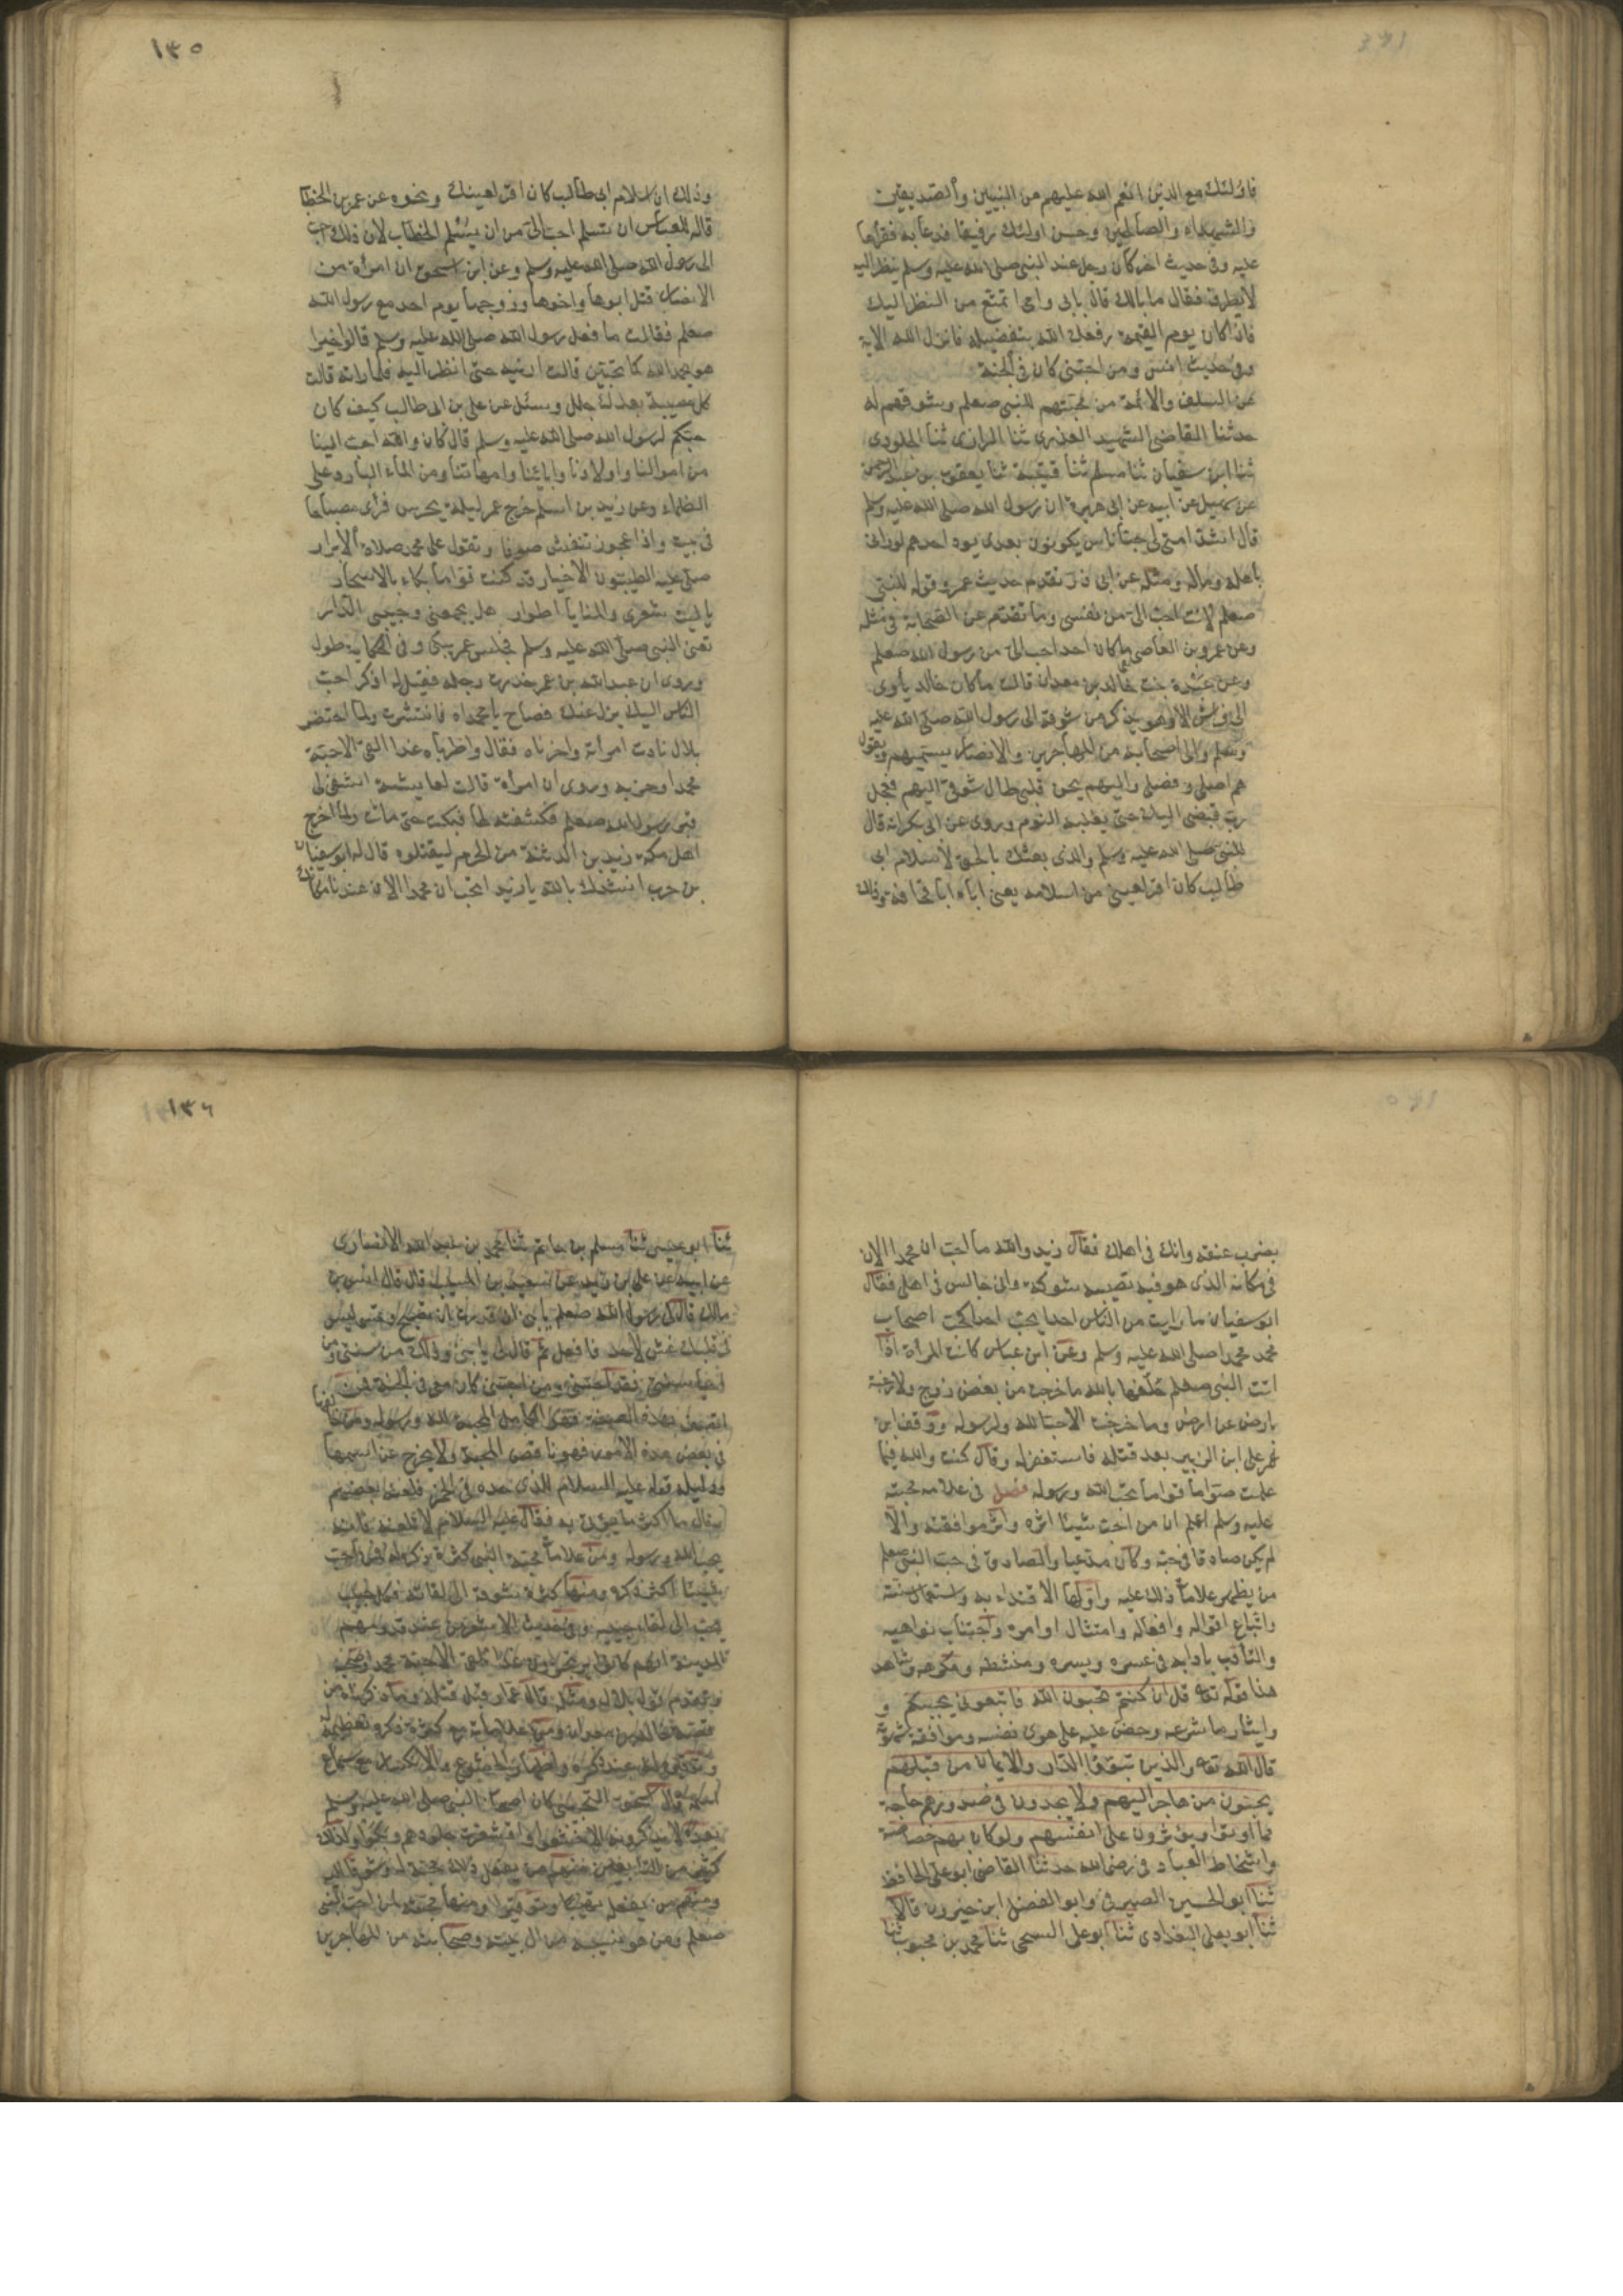 فاولئك مع الذين انعم الله عليهم من النبيين والصديقين
والشهداء والصالحين وحسن اولئك رفيقا فدعا به فقراها
عليه وفي حديث اخر كان رجل عند النبي صلى الله عليه وسلم ينظر اليه
لا يطرف فقال ما بالك قال بابي وامي اتمتع من النظر اليك
فاذا كان يوم القيمة رفعك الله بتفضيله فانزل الله الاية
وفي حديث انس ومن احبني كان في الجنة
عن السلف والائمة من محبتهم للنبي صعلم وشوقهم له
حدثنا القاضي الشهيد العذري ثنا الرازي ثنا الجلودي
ثنا ابن سفيان ثنا مسلم ثنا قتيبة ثنا يعقوب بن عبد الرحمن
عن سهيل عن ابيه عن ابي هريرة ان رسول الله صلى الله عليه وسلم
قال اشد امتي لي حبا ناس يكونون بعدي يود احدهم لو راني
باهله وماله ومثله عن ابي ذر تقدم حديث عمر وقوله للنبي
صعلم لانت احب الي من نفسي وما تقدم عن الصحابة في مثله
وعن عمرو بن العاصي ما كان احد احب الي من رسول الله صعلم
وعن عبدة بنت خالد بن معدان قالت ما كان خالد ياوي
الى فراش الا وهو يذكر من شوقه الى رسول الله صلى الله عليه
وسلم والى اصحابه من المهاجرين والانصار يسميهم ويقول
هم اصلي وفصلي واليهم يحن قلبي طال شوقي اليهم فعجل
رب قبضي اليك حتى يغلبه النوم وروى عن ابي بكر انه قال
للنبي صلى الله عليه وسلم والذي بعثك بالحق لاسلام ابي
طالب كان اقر لعيني من اسلامه يعني اباه ابا قحافة وذلك
١٣٥
وذلك ان اسلام ابي طالب كان اقر لعينك ونحوه عن عمر بن الخطا
قاله للعباس ان تسلم احب الي من ان يسلم الخطاب لان ذلك احب
الى رسول الله صلى الله عليه وسلم وعن ابن اسحق ان امراة من
الانصار قتل ابوها واخوها وزوجها يوم احد مع رسول الله
صعلم فقالت ما فعل رسول الله صلى الله عليه وسلم قالوا خيرا
هو بحمد الله كما تحبين قالت ارنيه حتى انظر اليه فلما راته قالت
كل مصيبة بعدك جلل وسئل عن علي بن ابي طالب كيف كان
حبكم لرسول الله صلى الله عليه وسلم قال كان والله احب الينا
من اموالنا واولادنا وابائنا وامهاتنا ومن الماء البارد على
الظماء وعن زيد بن اسلم خرج عمر ليلة يحرس فراى مصباحا
في بيت واذا عجوز تنفش صوفا وتقول على محمد صلاة الابرار
صلى عليه الطيبون الاخيار قد كنت قواما بكاء بالاسحار
يا ليت شعري والمنايا اطوار هل يجمعني وحبيبي الدار
تعني النبي صلى الله عليه وسلم فجلس عمر يبكي وفي الحكاية طول
وروى ان عبد الله بن عمر خدرت رجله فقيل له اذكر احب
الناس اليك يزل عنك فصاح يا محمداه فانتشرت ولما احتضر
بلال نادت امراته واحزناه فقال واطرباه غدا القى الاحبة
محمدا وحزبه وروى ان امراة قالت لعايشة اكشفي لي
قبر رسول الله صعلم فكشفته لها فبكت حتى ماتت ولما اخرج
اهل مكة زيد بن الدثنة من الحرم ليقتلوه قال له ابو سفيان
بن حرب انشدك بالله يا زيد اتحب ان محمدا الان عندنا مكانك
بضرب عنقه وانك في اهلك فقال زيد والله ما احب ان محمدا الان
في مكانه الذي هو فيه تصيبه شوكة واني جالس في اهلي فقال
ابو سفيان ما رايت من الناس احدا يحب احدا كحب اصحاب
محمد محمدا صلى الله عليه وسلم وعن ابن عباس كانت المراة اذا
اتت النبي صعلم حلفها بالله ما خرجت من بغض زوج ولا رغبة
بارض عن ارض وما خرجت الا حبا لله ولرسوله ووقف ابن
عمر على ابن الزبير بعد قتله فاستغفر له وقال كنت والله فيما
علمت صواما قواما تحب الله ورسوله فصل في علامة محبته
عليه وسلم اعلم ان من احب شيئا اثره واثر موافقته والا
لم يكن صادقا في حبه وكان مدعيا والصادق في حب النبي صعلم
من يظهر علامات ذلك عليه واولها الاقتداء به واستعمال سنته
واتباع اقواله وافعاله وامتثال اوامره واجتناب نواهيه
والتادب بادابه في عسره ويسره ومنشطه ومكرهه وشاهد
هذا قوله تعه قل ان كنتم تحبون الله فاتبعوني يحببكم و
وايثار ما شرعه وحض عليه على هوى نفسه وموافقة شهوته
قال الله تعه والذين تبوؤا الدار والايمان من قبلهم
يحبون من هاجر اليهم ولا يجدون في صدورهم حاجة
مما اوتوا ويؤثرون على انفسهم ولو كان بهم خصاصة
واسخاط العباد في رضى الله حدثنا القاضي ابو علي الحافظ
ثنا ابو الحسين الصيرفي وابو الفضل ابن خيرون قالا
ثنا ابو يعلى البغدادي ثنا ابو علي السنجي ثنا محمد بن محبوب ثنا
١٣٦
ثنا ابو عيسى ثنا مسلم بن حاتم ثنا محمد بن عبد الله الانصاري
عن ابيه عن علي بن زيد عن سعيد بن المسيب قال قال انس بن
مالك قال لي رسول الله صعلم يا بني ان قدرت ان تصبح وتمسي ليس
في قلبك غش لاحد فافعل ثم قال لي يا بني وذلك من سنتي ومن
احيا سنتي فقد احبني ومن احبني كان معي في الجنة فمن
اتصف بهذه الصفة فهو كامل المحبة لله ورسوله ومن خالفها
في بعض هذه الامور فهو ناقص المحبة ولا يخرج عن اسمها
ودليله قوله عليه السلام للذي حده في الخمر فلعنه بعضهم
وقال ما اكثر ما يؤتى به فقال عليه السلام لا تلعنه فانه
يحب الله ورسوله ومن علامات محبة النبي كثرة ذكره له فمن احب
شيئا اكثر ذكره ومنها كثرة شوقه الى لقائه فكل حبيب
يحب الى لقاء حبيبه وفي حديث الاشعريين عند قدومهم
المدينة انهم كانوا يرتجزون غدا نلقى الاحبة محمدا وصحبه
وتقدم قول بلال ومثله قال عمار قبل قتله وما ذكرناه من
قصة خالد بن معدان ومن علاماته مع كثرة ذكره تعظيمه له
وتوقيره عند ذكره واظهار الخشوع والانكسار مع سماع
اسمه قال اسحق التجيبي كان اصحاب النبي صلى الله عليه وسلم
بعده لا يذكرونه الا خشعوا واقشعرت جلودهم وبكوا وكذلك
كثير من التابعين منهم من يفعل ذلك محبة له وشوقا اليه
ومنهم من يفعله تهيبا وتوقيرا ومنها محبته لمن احب النبي
صعلم ومن هو بسببه من ال بيته وصحابته من المهاجرين